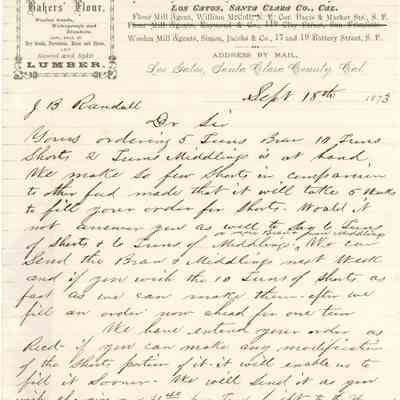 Bakers' Flour,
Woolen Goods,
Wholesale and
Blankets,
Dry Goods, Provisions, Boots and Shoes,
Sawed and Split
LUMBER.
Los Gatos, Santa Clara Co., Cal.
Flour Mill Agent, William McColl, N. E. Cor. Davis & Market Sts., S. F.
Woolen Mill Agents, Simon, Jacobs & Co., 17 and 19 Battery Street, S. F.
ADDRESS BY MAIL,
Los Gatos, Santa Clara County, Cal.
Sept 18th 1873
J B Randall
Dr Sir
Yours ordering 5 Tuns Bran 10 Tuns
Shorts 2 Tuns Middlings is at hand.
We make so few Shorts in comparrison
to other feed made that it will take 5 Weeks
to fill your order for Shorts. Would it
not answer you as well to say 6 Tuns
or more Bran & more Middlings
of Shorts & 6 Tuns of Middlings, We can
Send the Bran & Middlings next Week
and if you wish the 10 Tuns of Shorts as
fast as we can make them after we
fill an order now ahead for one tun
We have entered your order as
Recd. if you can make any modification
of the Shorts portion of it it will enable us to
fill it Sooner. We will send it as you